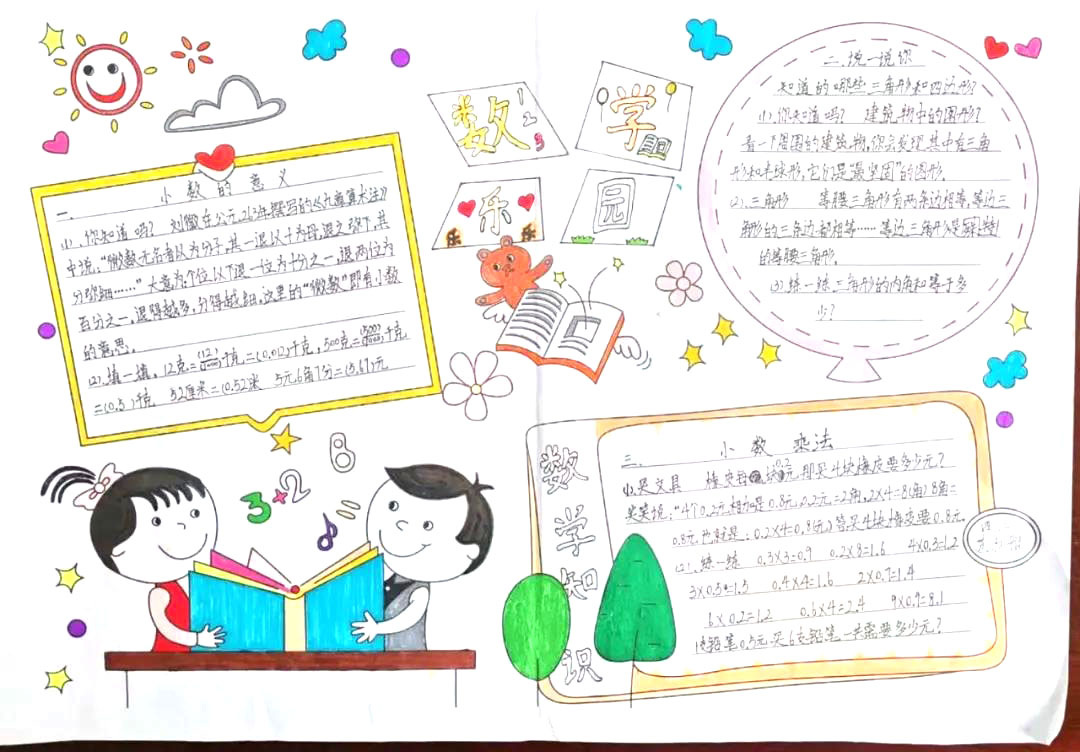 数
1
2
3
学
乐
园
一、小数的意义
(1)、你知道吗？ 刘徽在公元263年撰写的《九章算术注》
中说：“微数无名者以为分子，其一退以十为母，退之弥下，其
分弥细……”大意为：个位以下退一位为十分之一，退两位为
百分之一，退得越多，分得越细。这里的“微数”即有小数
的意思。
(2)、填一填。12克=(12)/(1000)千克=(0.012)千克，500克=(500)/(1000)千克
=(0.5)千克 52厘米=(0.52)米 5元6角7分=(5.67)元
二、说一说你
知道的哪些三角形和四边形？
(1)、你知道吗？ 建筑物中的图形？
看一下周围的建筑物，你会发现其中有三角
形和半球形，它们是“最坚固”的图形。
(2)、三角形 等腰三角形有两条边相等，等边三
角形的三条边都相等……等边三角形是特殊
的等腰三角形。
(3)、练一练，三角形的内角和等于多
少？
3+2
8
=
数学知识
三、小数乘法
(1)、买文具 橡皮每块0.2元，那买4块橡皮要多少元？
笑笑说：“4个0.2元相加是0.8元，0.2元=2角，2×4=8(角) 8角=
0.8元。也就是：0.2×4=0.8(元)答买4块橡皮要0.8元。
(2)、练一练 0.3×3=0.9 0.2×8=1.6 4×0.3=1.2
3×0.5=1.5 0.4×4=1.6 2×0.7=1.4
6×0.2=1.2 0.6×4=2.4 9×0.9=8.1
1支铅笔0.5元，买6支铅笔一共需要多少元？